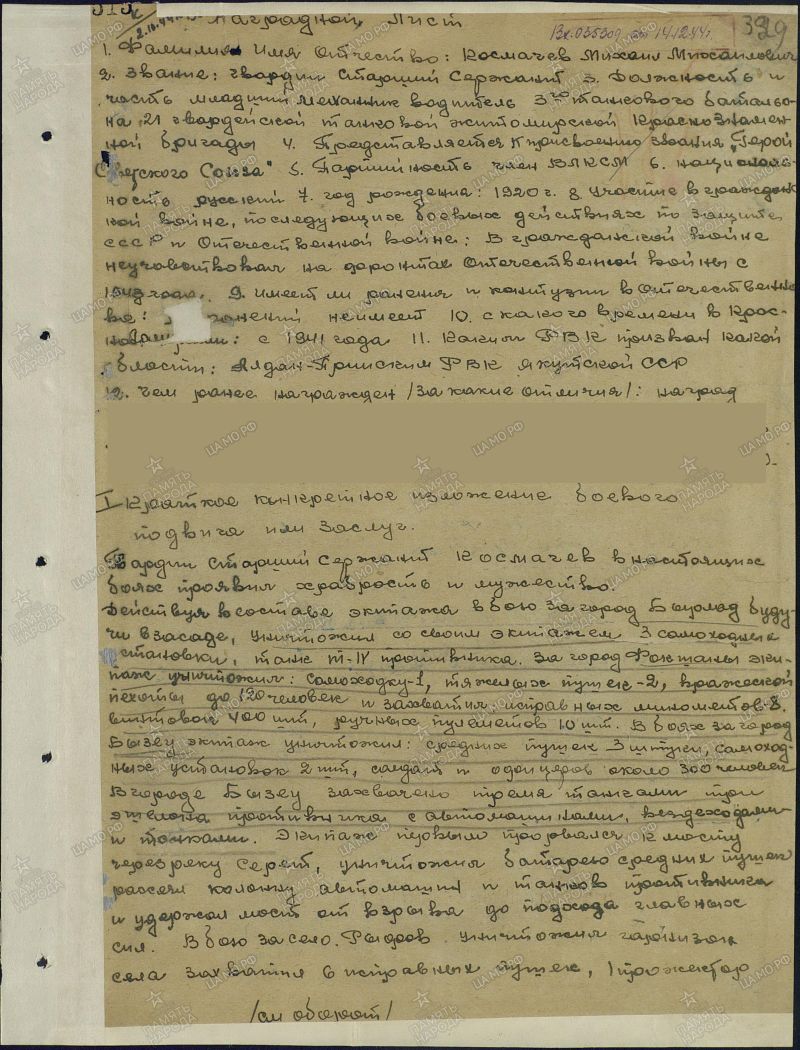 Наградной Лист
Вх. 05530д от 14.12.44г.
1. Фамилия Имя Отчество: Космачев Михаил Михайлович
2. Звание: гвардии Старший Сержант 3. Должность и
часть младший механик водитель 3го танкового баталъо-
на 21 гвардейской танковой житомирской Краснознамен-
ной бригады 4. Представляется к присвоению звания „Герой
Советского Союза" 5. Партийность член ВЛКСМ 6. национал-
ность русский 7. год рождения: 1920 г. 8. участие в граждан-
кой войне, последующих боевых действиях по защите
СССР и Отечественной войне: В гражданской войне
неучавствовал на фронтах Отечественной войны с
1943 года. 9. имеет ли ранения и контузии в Отечественн
ве: ранений неимеет 10. с какого времени в Крас-
ной армии: с 1941 года 11. Каким РВК призван какой
области: Алдан-Прииским РВК якутской ССР
12. чем ранее награжден /за какие отличия/: наград
I Краткое конкретное изложение боевого
подвига или заслуг.
Гвардии Старший Сержант Космачев в настоящих
боях проявил храбрость и мужество.
Действуя в составе экипажа в бою за город Бырлад буду-
чи в засаде, уничтожил со своим экипажем 3 самоходных
установки, танк Т-IV противника. За город Фокшаны эки-
паж уничтожил: самоходку-1, тяжелых пушек-2, вражеской
пехоты до 120 человек и захватил исправных минометов-8.
винтовок 400 шт, ручных пулеметов 10 шт. В боях за город
Бызеу экипаж уничтожил: средних пушек 3 штуки, самоход-
ных установок 2 шт, солдат и офицеров около 300 человек
В городе Бызеу захвачено тремя танками три
эшелона противника с автомашинами, вездеходами
и танками. Экипаж первым прорвался к мосту
через реку Серет, уничтожил батарею средних пушек
рассеял колонну автомашин и танков противника
и удержал мост от взрыва до подхода главных
сил. В бою за село Рыфов уничтожил гарнизон
села захватил 6 исправных пушек, 1 прожектор
/см оборот/